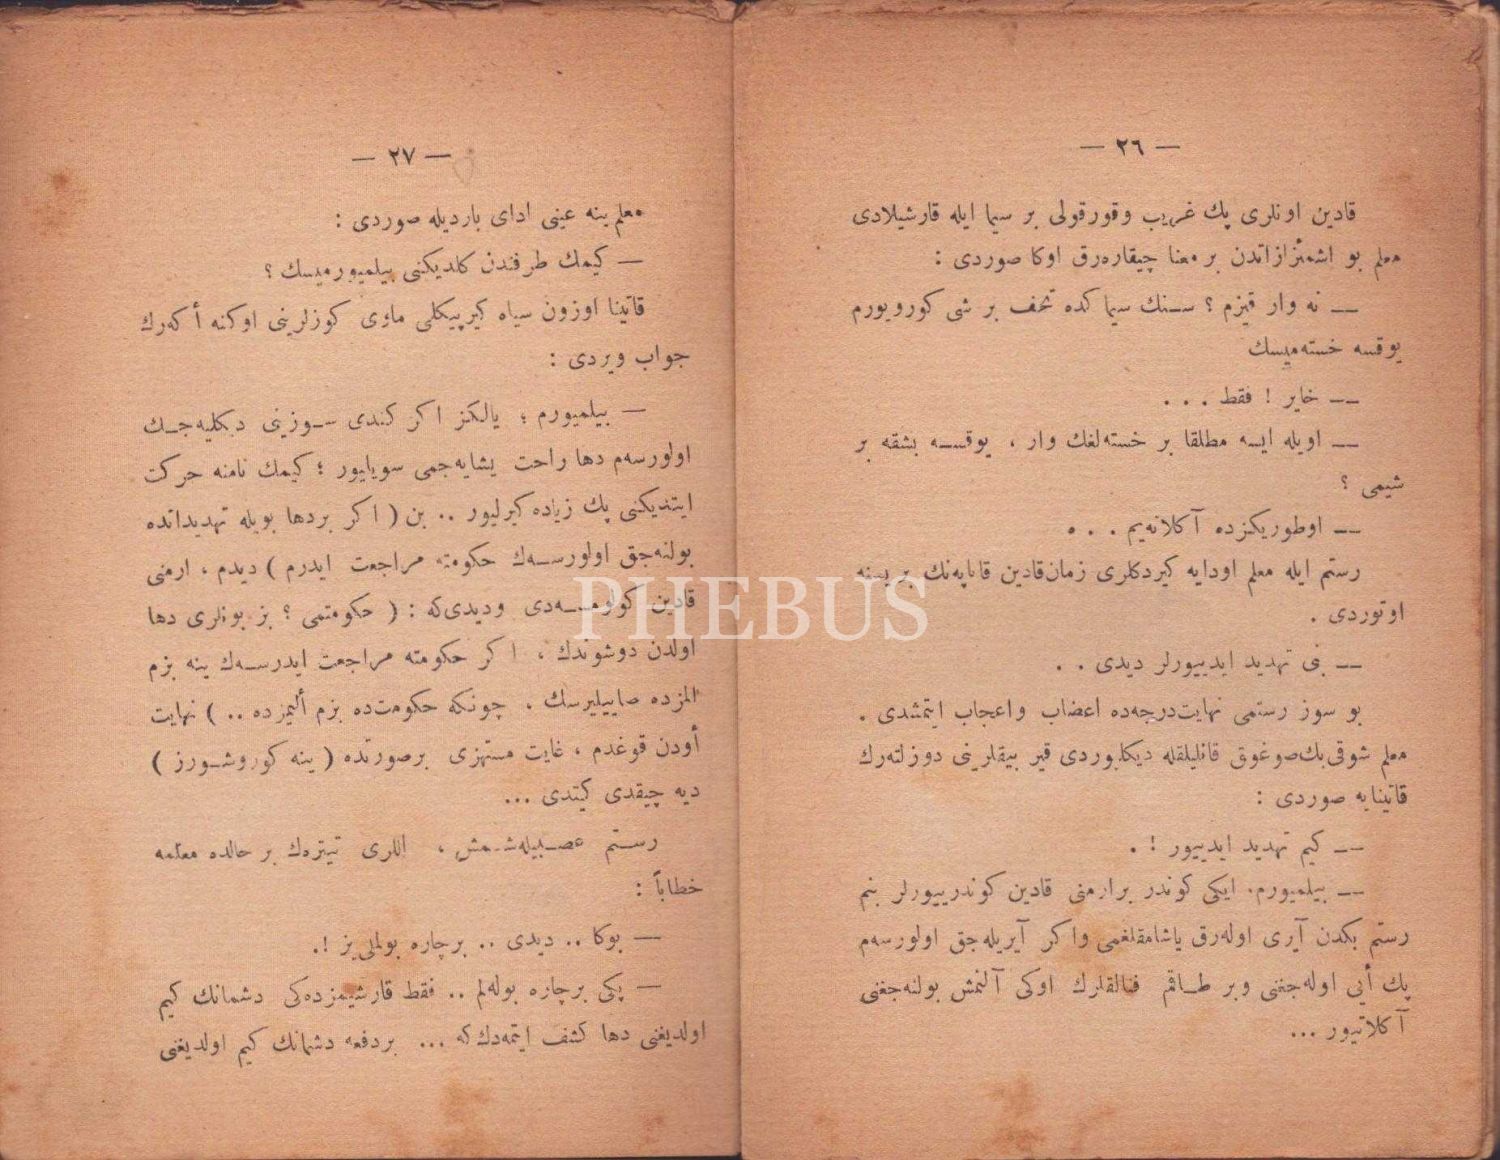 — ٢٦ —
قادين اونلری پك غريب وقورقولی بر سيما ايله قارشيلادی
معلم بو اشمئزازاتدن بر معنا چيقاره‌رق اوكا صوردی :
— نه وار قيزم ؟ سنك سيماكده تحف بر شی كورويورم
يوقسه خسته‌ميسك
— خاير ! فقط . . .
— اويله ايسه مطلقا بر خسته‌لغك وار ، يوقسه بشقه بر
شيمی ؟
— اوطوريكزده آكلاته‌يم . . .
رستم ايله معلم اودايه كيردكلری زمان قادين قاناپه‌نك بريسنه
اوتوردی .
— بنی تهديد ايدييورلر ديدی . .
بو سوز رستمی نهايت درجه‌ده اعضاب واعجاب ايتمشدی .
معلم شوقی بك صوغوق قانليلقله ديكليوردی قير بيقلرينی دوزلته‌رك
قاتينايه صوردی :
— كيم تهديد ايدييور ! .
— بيلميورم. ايكی كوندر برارمنی قادين كوندرييورلر بنم
رستم بكدن آيری اوله‌رق ياشامقلغمی واكر آيريله‌جق اولورسه‌م
پك أيی اوله‌جغنی وبر طاقم فنالقلرك اوكی آلنمش بولنه‌جغنی
آكلاتيور ...
— ٢٧ —
معلم ينه عينی ادای بارديله صوردی :
— كيمك طرفندن كلديكنی بيلميورميسك ؟
قاتينا اوزون سياه كيرپيكلی ماوی كوزلرينی اوكنه أكه‌رك
جواب ويردی :
— بيلميورم ؛ يالكز اكر كندی سوزينی ديكليه‌جك
اولورسه‌م دها راحت يشايه‌جمی سويليور ؛ كيمك نامنه حركت
ايتديكنی پك زياده كيزليور .. بن ( اكر بردها بويله تهديداتده
بولنه‌جق اولورسه‌ك حكومته مراجعت ايدرم ) ديدم ، ارمنی
قادين كولومسه‌دی وديدی‌كه : ( حكومتمی ؟ بز بونلری دها
اولدن دوشوندك ، اكر حكومته مراجعت ايدرسه‌ك ينه بزم
المزده صاييليرسك . چونكه حكومت‌ده بزم أليمزده .. ) نهايت
أودن قوغدم ، غايت مستهزی برصورتده ( ينه كوروشورز )
ديه چيقدی كيتدی ...
رستم عصبيله‌شمش ، اللری تيتره‌ك بر حالده معلمه
خطاباً :
— بوكا .. ديدی .. برچاره بولمالی‌يز !.
— پكی برچاره بوله‌لم .. فقط قارشيمزده‌كی دشمانك كيم
اولديغنی دها كشف ايتمه‌دك‌كه ... بردفعه دشمانك كيم اولديغنی
PHEBUS